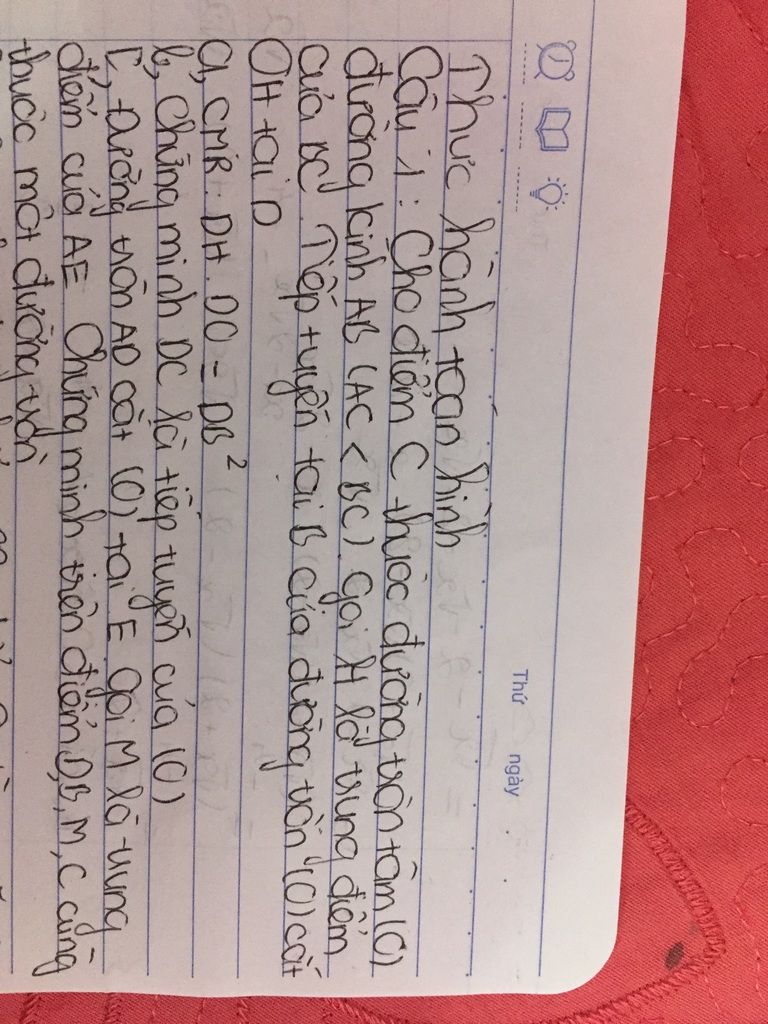 Thứ ngày
Thực hành toán hình
Câu 1: Cho điểm C thuộc đường tròn tâm (O)
đường kính AB (AC < BC). Gọi H là trung điểm
của BC. Tiếp tuyến tại B của đường tròn (O) cắt
OH tại D
a, CMR: DH. DO = DB²
b, chứng minh DC là tiếp tuyến của (O)
c, Đường tròn AD cắt (O) tại E gọi M là trung
điểm của AE Chứng minh trên điểm D,B,M,C cùng
thuộc một đường tròn